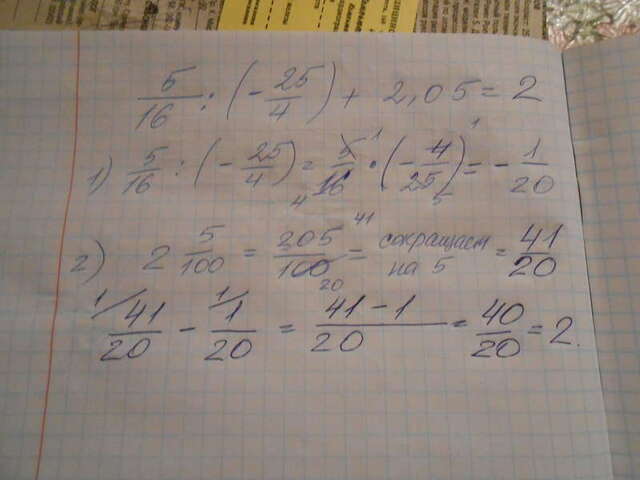 5/16 : (- 25/4) + 2,05 = 2
1) 5/16 : (- 25/4) = 5/16 · (- 4/25) = - 1/20
2) 2 5/100 = 205/100 = сокращаем на 5 = 41/20
41/20 - 1/20 = 41-1/20 = 40/20 = 2.